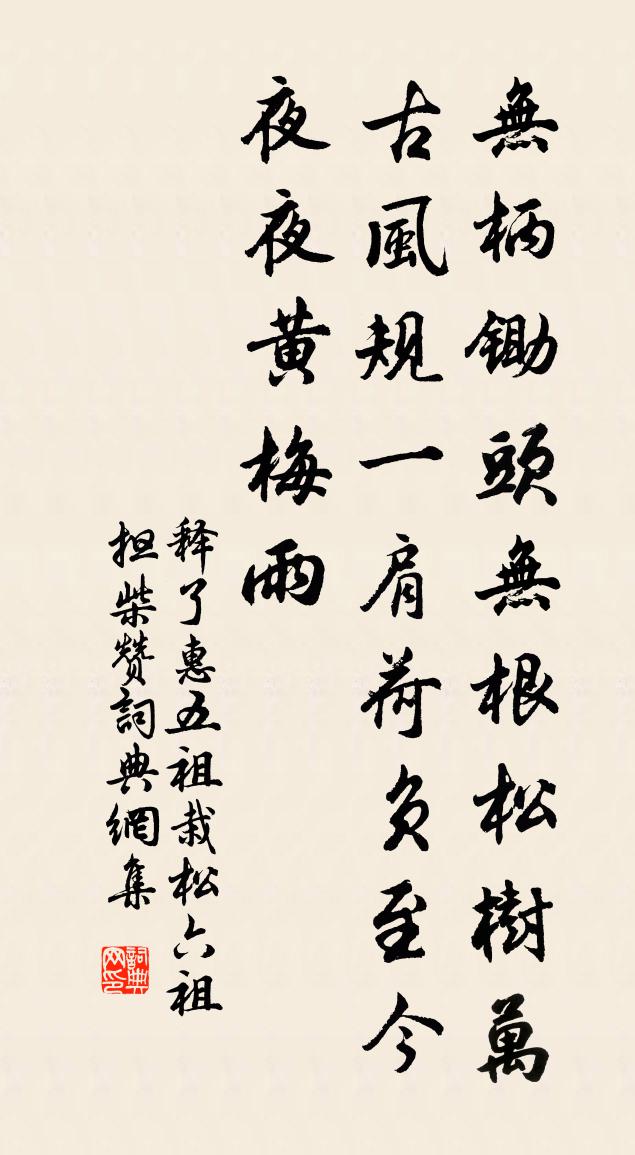 無柄鋤頭無根松樹萬
古風規一肩荷负至今
夜夜黄梅雨
释了惠五祖栽松六祖
担柴赞詞典網集
詞典
网印